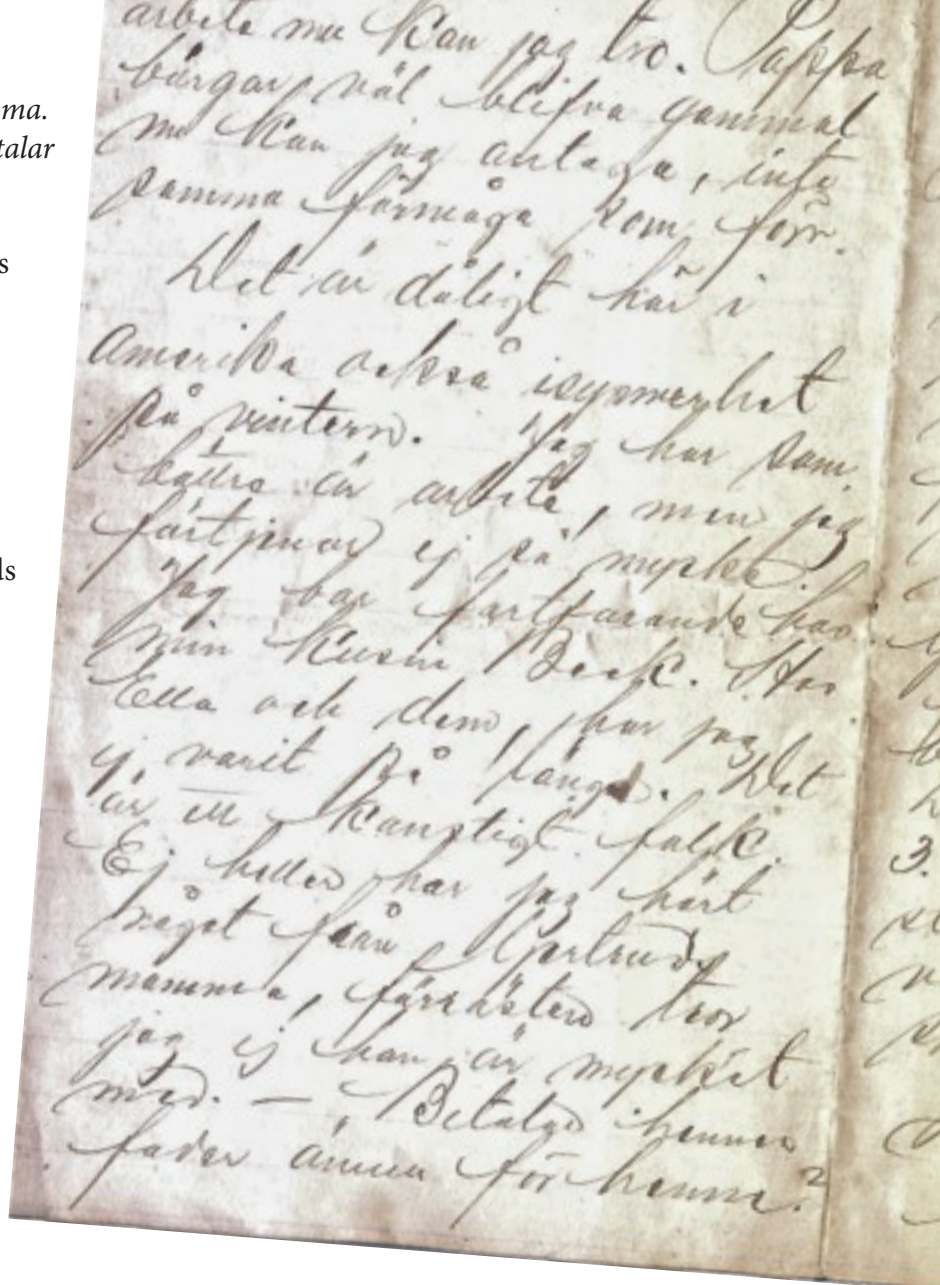 ma.
talar
s
ds
arbete nu kan jag tro. Pappa
börgar väl blifva gammal
nu kan jag antaga, inte
samma förmåga som förr.
Det är dåligt här i
Amerika också isynnerhet
på vintern. Jag har som
bättre är arbete, men jag
förtjenar ej så mycke.
Jag bor fortfarande hos
min Kusin Beck. Hos
Ella och dem, har jag
ej varit på länge. Det
är ett konstigt folk.
Ej heller har jag hört
något från Gertruds
mamma, förresten tror
jag ej hon är mycket
med. — Betalar hennes
fader ännu för henne?
3.